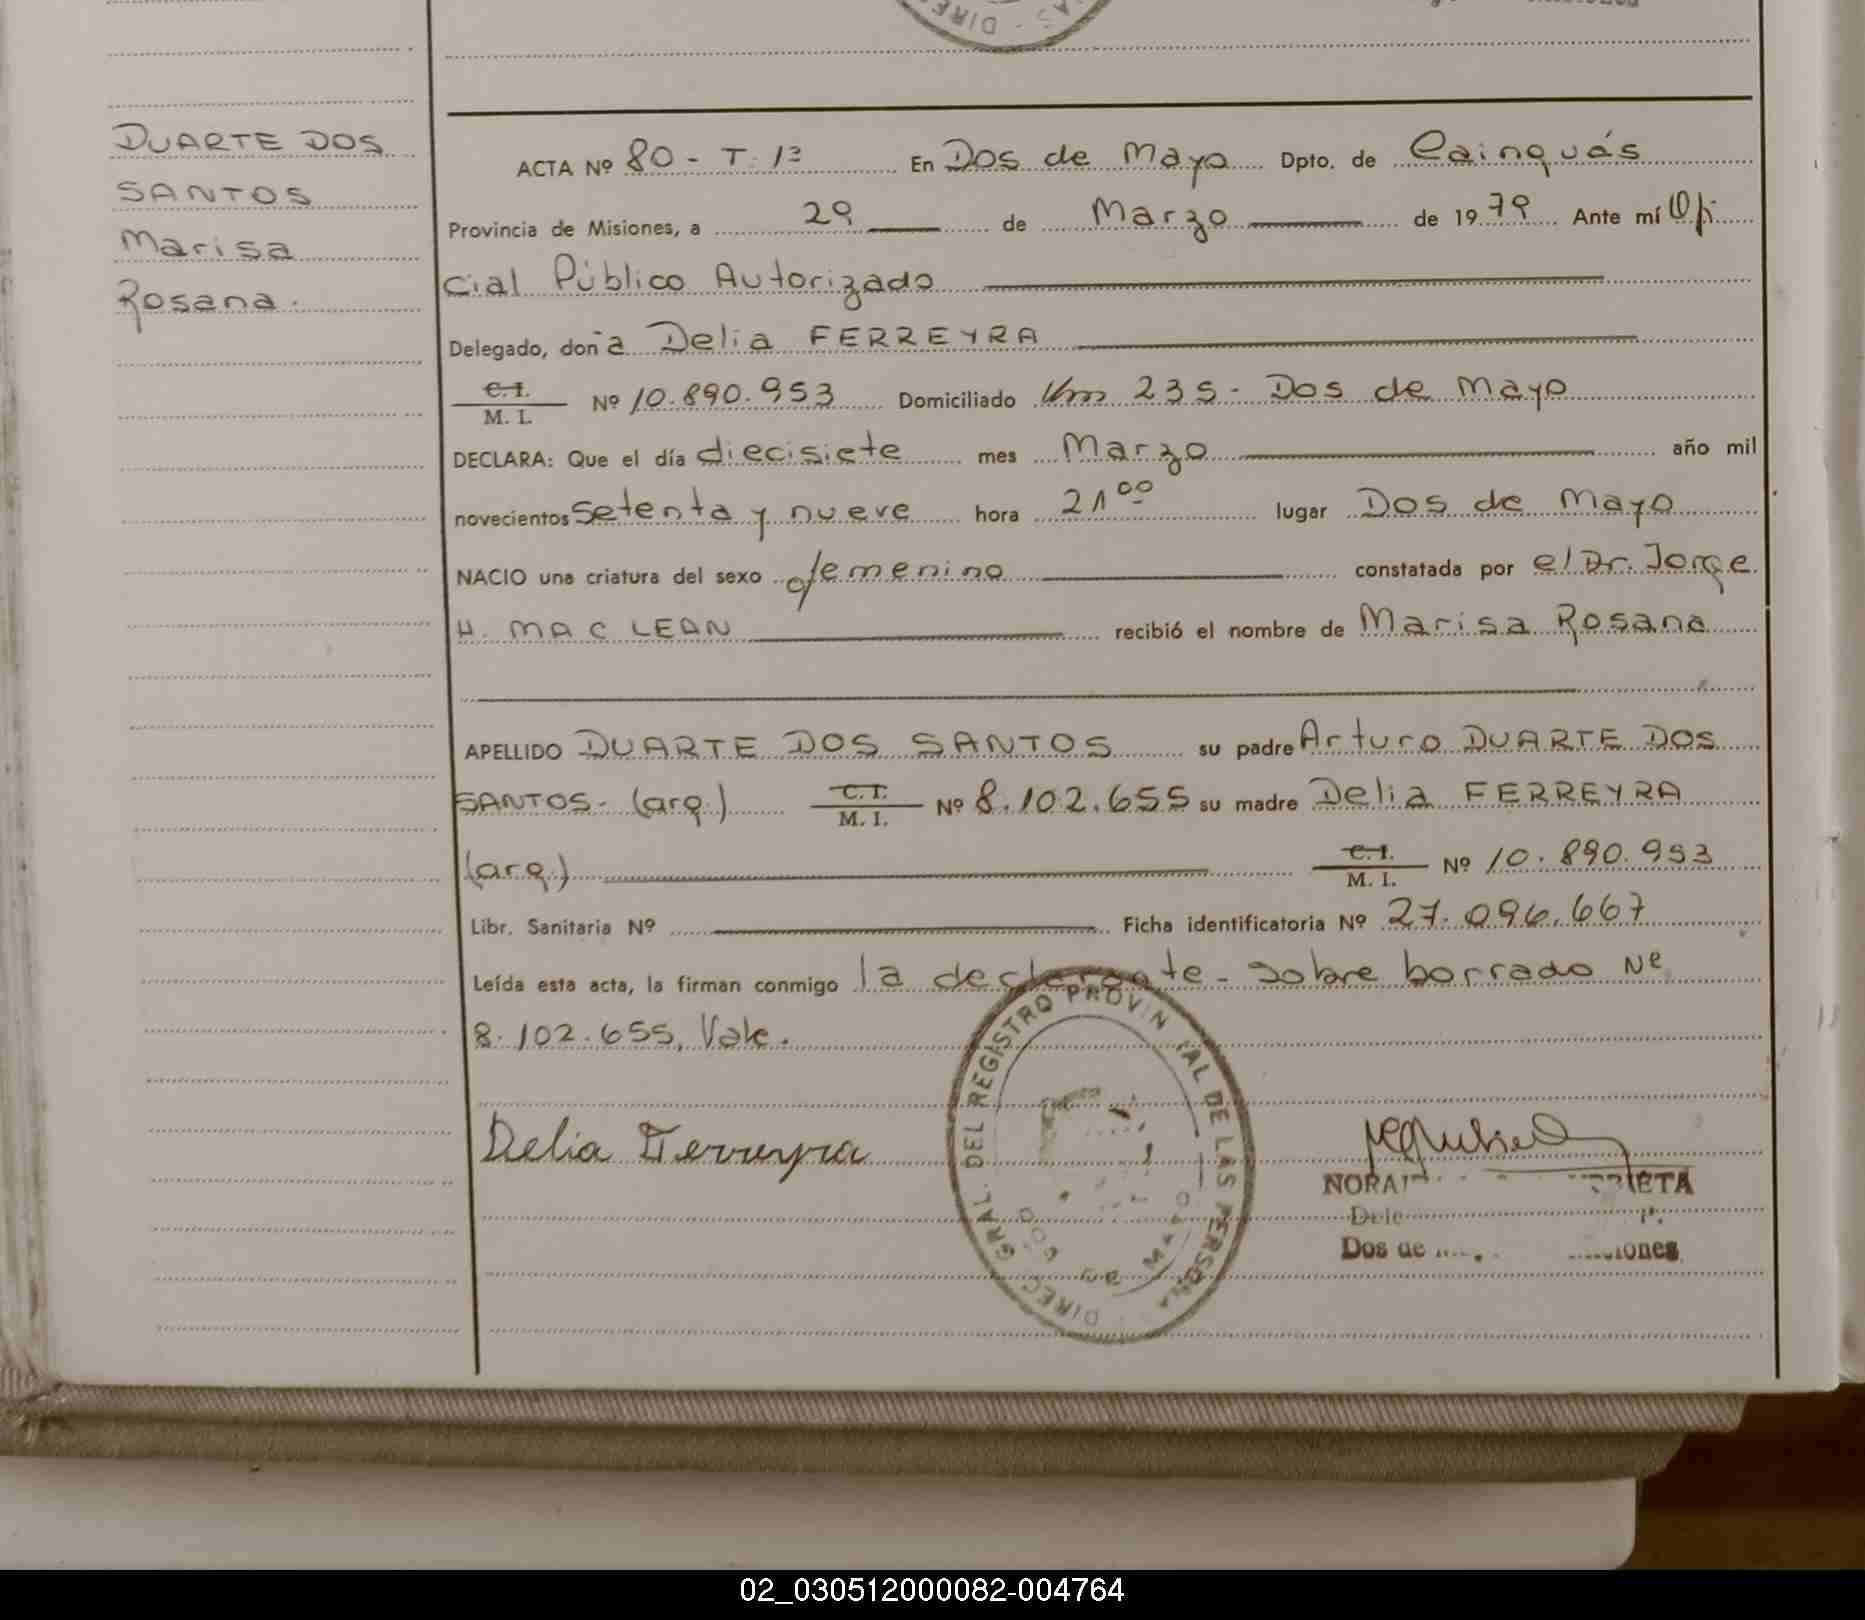 DUARTE DOS
SANTOS
Marisa
Rosana.
ACTA Nº 80 - T. 1º En Dos de Mayo Dpto. de Cainguás
Provincia de Misiones, a 29 de Marzo de 1979 Ante mí Ofi
cial Público Autorizado
Delegado, doña Delia FERREYRA
C.I. M.I. Nº 10.890.953 Domiciliado Km 235 - Dos de Mayo
DECLARA: Que el día diecisiete mes Marzo año mil
novecientos setenta y nueve hora 21 00 lugar Dos de Mayo
NACIO una criatura del sexo femenino constatada por el Dr. Jorge
H. MAC LEAN recibió el nombre de Marisa Rosana
APELLIDO DUARTE DOS SANTOS su padre Arturo DUARTE DOS
SANTOS - (arg.) C.I. M.I. Nº 8.102.655 su madre Delia FERREYRA
(arg.) C.I. M.I. Nº 10.890.953
Libr. Sanitaria Nº Ficha identificatoria Nº 27.096.667
Leída esta acta, la firman conmigo la declarante - sobre borrado Nº
8.102.655, Vale.
DIREC. GRAL. DEL REGISTRO PROVINCIAL DE LAS PERSONAS
Delia Ferreyra
Dos de
02_030512000082-004764